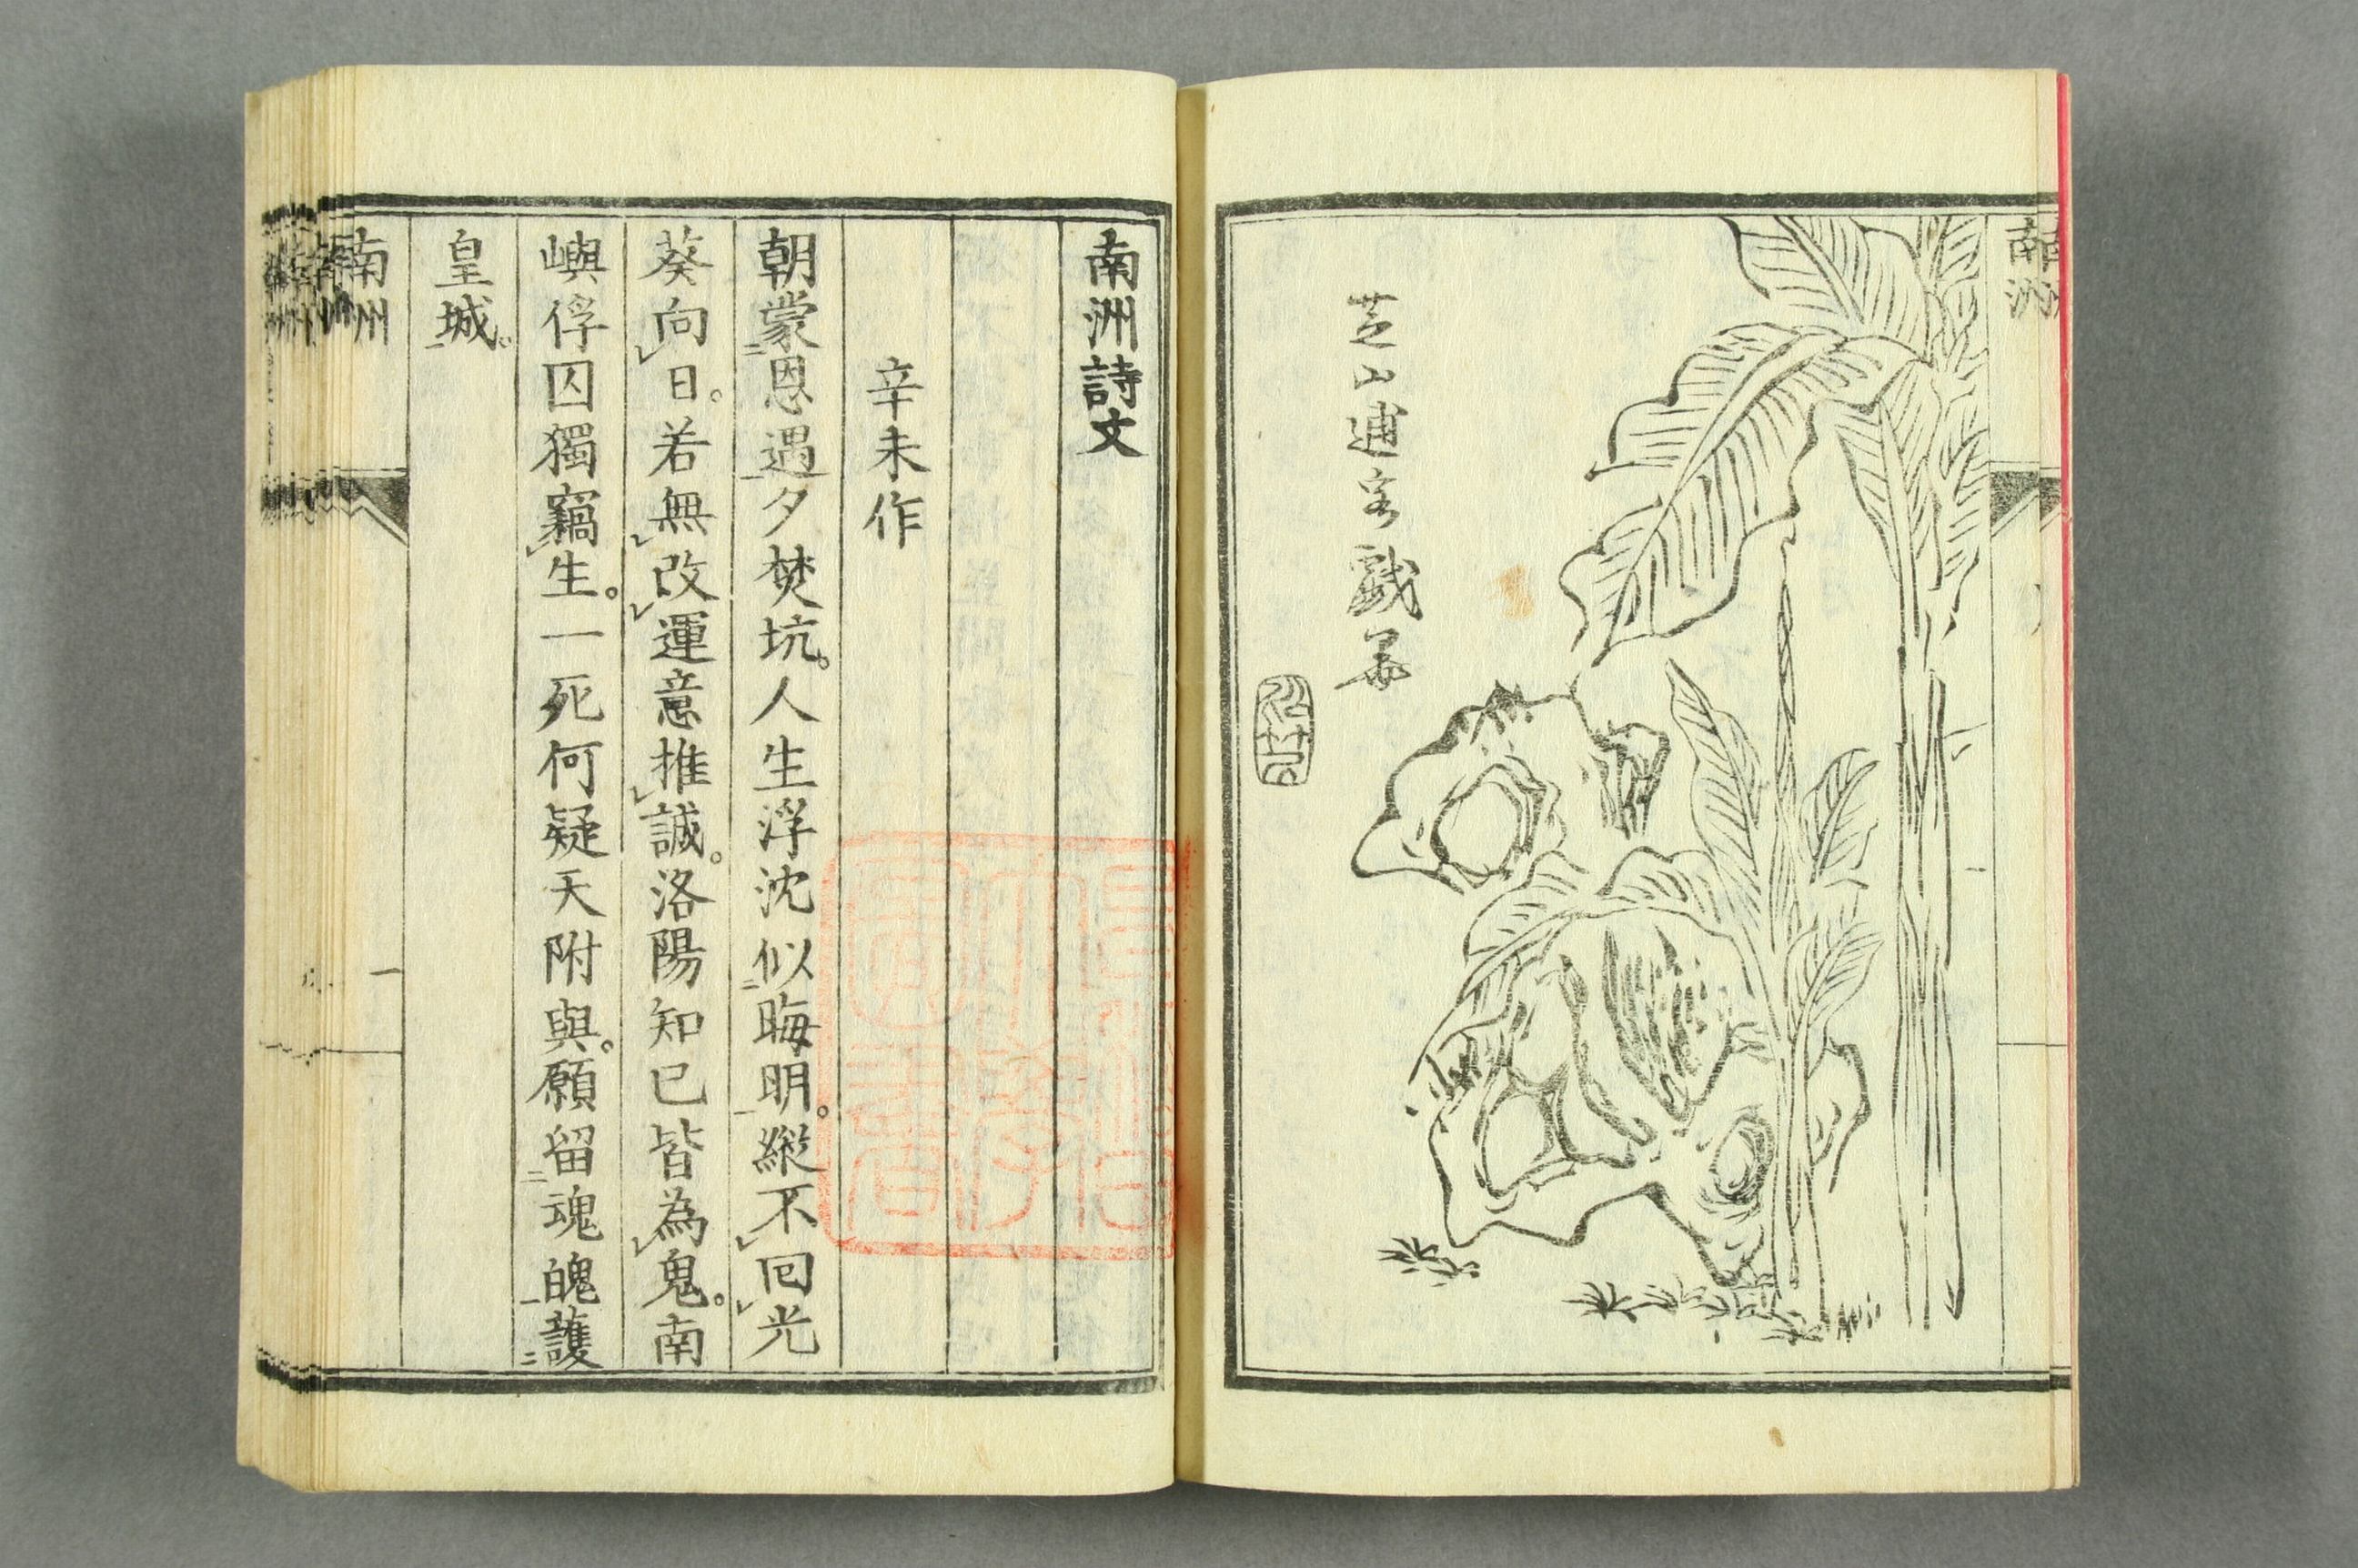 南洲
芝山逋客戯墨
南洲詩文
辛未作
朝蒙恩遇夕焚坑。人生浮沈似晦明。縱不回光
葵向日。若無改運意推誠。洛陽知已皆為鬼。南
嶼俘囚獨竊生。一死何疑天附與。願留魂魄護
皇城。
南州
一